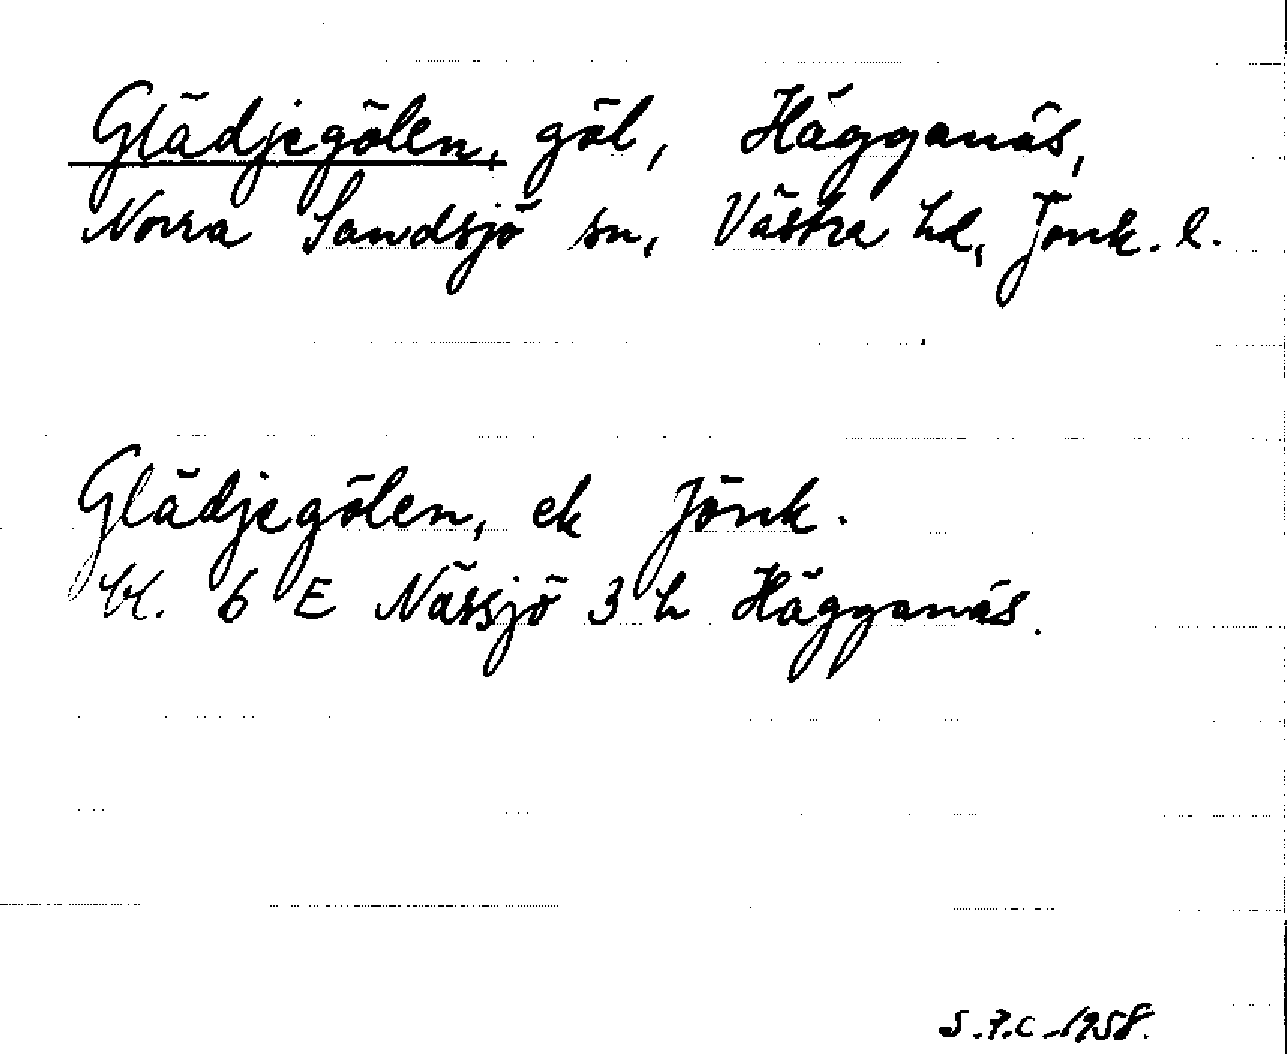 Glädjegölen, göl, Hägganäs,
Norra Sandsjö sn, Västra hd, Jönk. l.
Glädjegölen, ek Jönk.
bl. 6 E Nässjö 3 h Hägganäs.
1958.